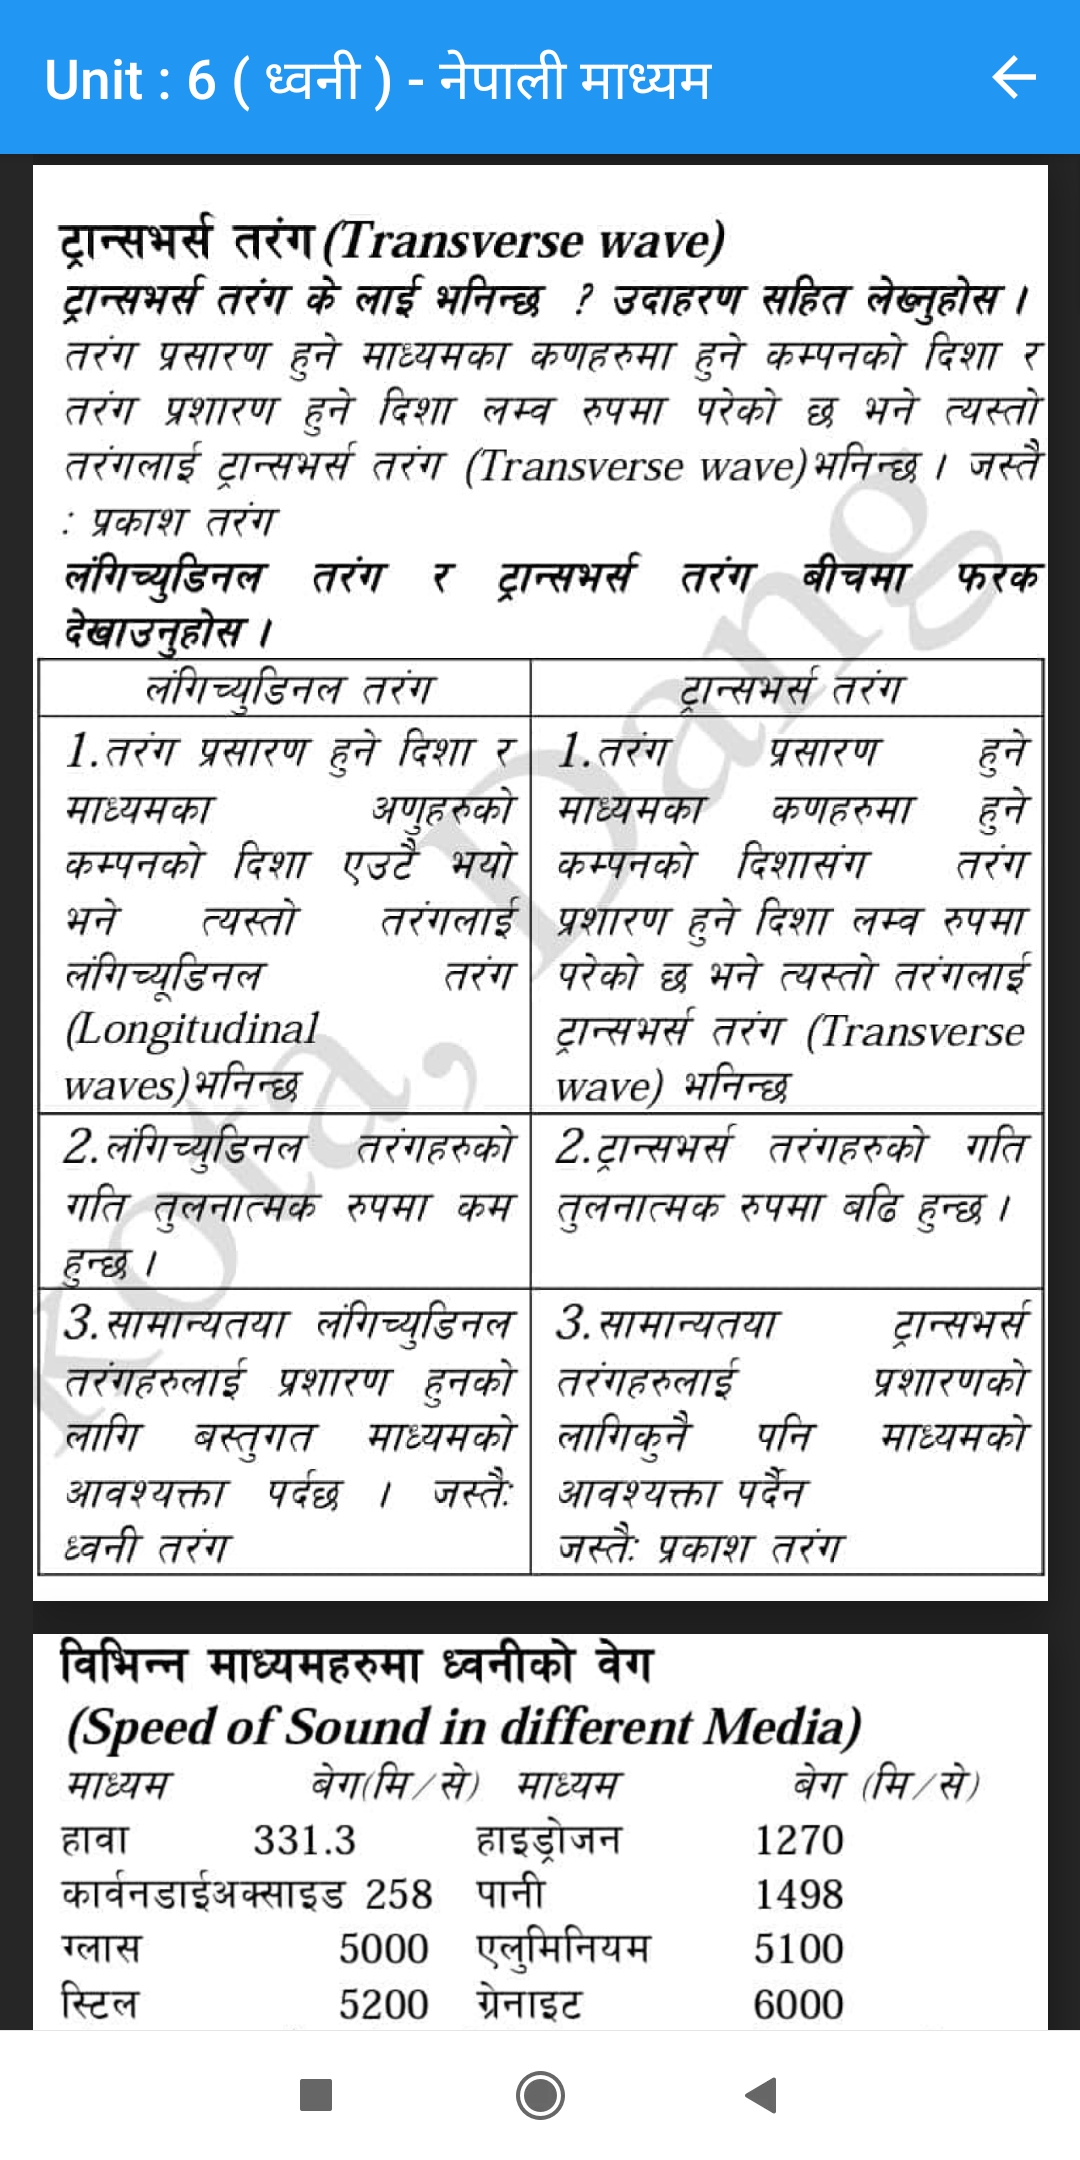 Unit : 6 ( ध्वनी ) - नेपाली माध्यम
ट्रान्सभर्स तरंग (Transverse wave)
ट्रान्सभर्स तरंग के लाई भनिन्छ ? उदाहरण सहित लेख्नुहोस ।
तरंग प्रसारण हुने माध्यमका कणहरुमा हुने कम्पनको दिशा र
तरंग प्रशारण हुने दिशा लम्व रुपमा परेको छ भने त्यस्तो
तरंगलाई ट्रान्सभर्स तरंग (Transverse wave)भनिन्छ । जस्तै
: प्रकाश तरंग
लंगिच्युडिनल तरंग र ट्रान्सभर्स तरंग बीचमा फरक
देखाउनुहोस ।
लंगिच्युडिनल तरंग
1.तरंग प्रसारण हुने दिशा र
माध्यमका अणुहरुको
कम्पनको दिशा एउटै भयो
भने त्यस्तो तरंगलाई
लंगिच्यूडिनल तरंग
(Longitudinal
waves)भनिन्छ
2.लंगिच्युडिनल तरंगहरुको
गति तुलनात्मक रुपमा कम
हुन्छ ।
3.सामान्यतया लंगिच्युडिनल
तरंगहरुलाई प्रशारण हुनको
लागि बस्तुगत माध्यमको
आवश्यक्ता पर्दछ । जस्तै:
ध्वनी तरंग
ट्रान्सभर्स तरंग
1.तरंग प्रसारण हुने
माध्यमका कणहरुमा हुने
कम्पनको दिशासंग तरंग
प्रशारण हुने दिशा लम्व रुपमा
परेको छ भने त्यस्तो तरंगलाई
ट्रान्सभर्स तरंग (Transverse
wave) भनिन्छ
2.ट्रान्सभर्स तरंगहरुको गति
तुलनात्मक रुपमा बढि हुन्छ ।
3.सामान्यतया ट्रान्सभर्स
तरंगहरुलाई प्रशारणको
लागिकुनै पनि माध्यमको
आवश्यक्ता पर्दैन
जस्तै: प्रकाश तरंग
Kota, Dang
विभिन्न माध्यमहरुमा ध्वनीको वेग
(Speed of Sound in different Media)
माध्यम बेग(मि/से) माध्यम बेग (मि/से)
हावा 331.3 हाइड्रोजन 1270
कार्वनडाईअक्साइड 258 पानी 1498
ग्लास 5000 एलुमिनियम 5100
स्टिल 5200 ग्रेनाइट 6000